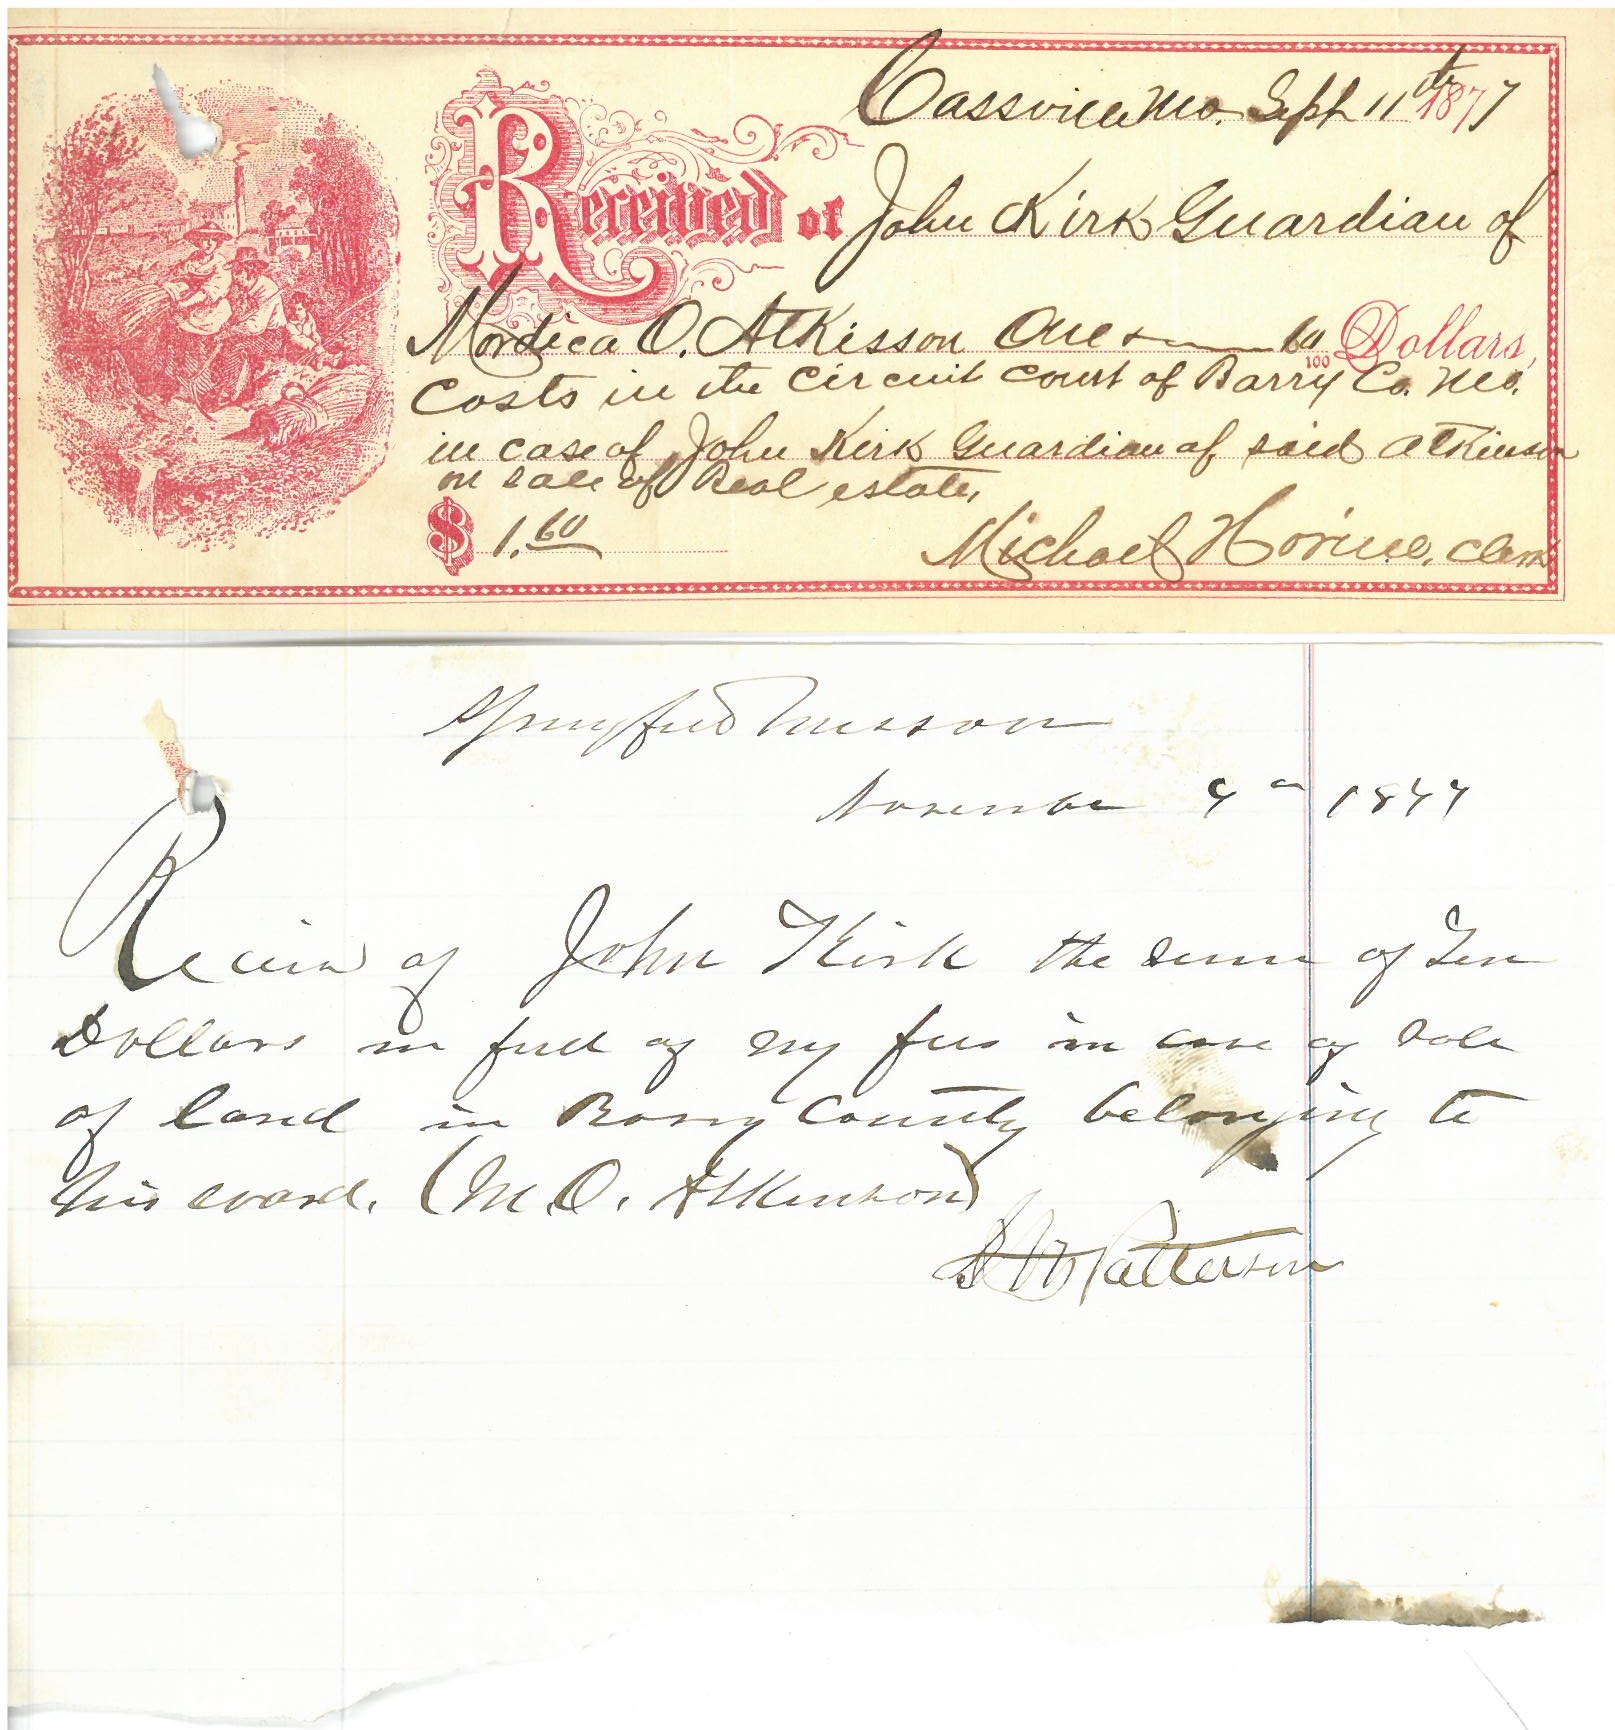 Cassville Mo. Sept 11th 1877
Received of John Kirk Guardian of
Mordica O. Atkisson One & 60/100 Dollars,
Costs in the Circuit Court of Barry Co. Mo.
in case of John Kirk Guardian of said Atkinson
on sale of Real estate,
$ 1.60
Michael Horine, Clerk
Springfield Missouri
November 9th 1877
Receivd of John Kirk the sum of Ten
Dollars in full of my fees in case of sale
of land in Barry County belonging to
his ward. (M.O. Atkinson)
Patterson